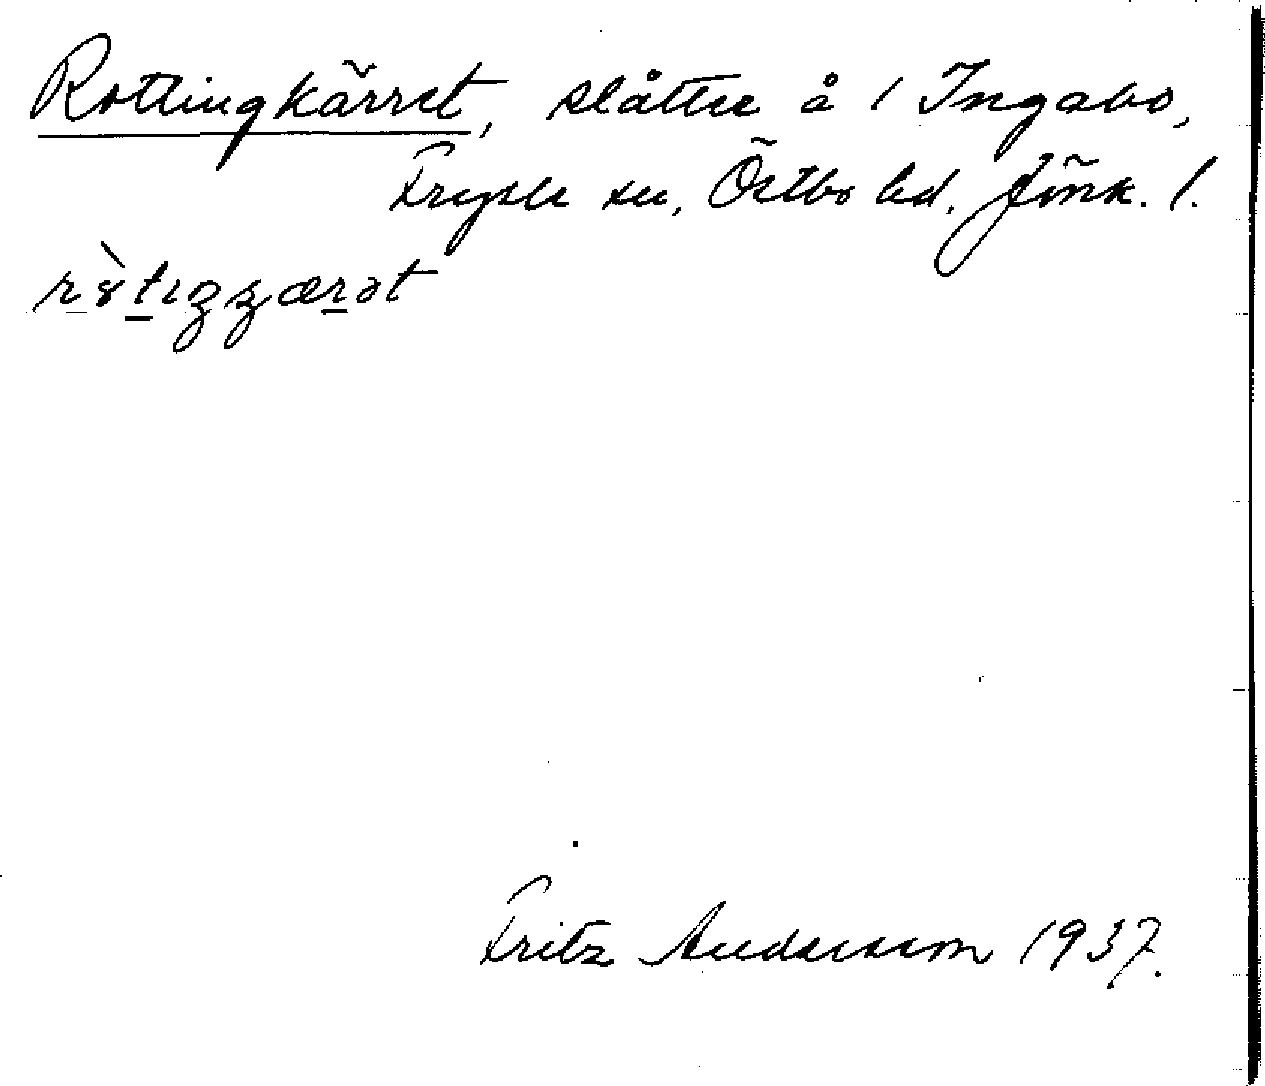 Rottingkärret, slåtter å 1 Ingabo,
Fryele sn, Östbo hd. Jönk. l.
Fritz Andersson 1937.